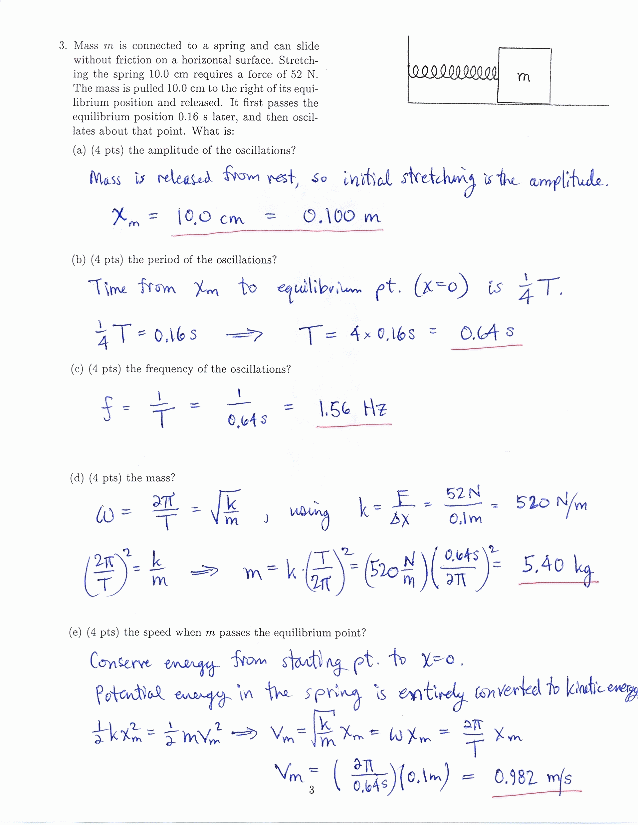 3. Mass m is connected to a spring and can slide
without friction on a horizontal surface. Stretch-
ing the spring 10.0 cm requires a force of 52 N.
The mass is pulled 10.0 cm to the right of its equi-
librium position and released. It first passes the
equilibrium position 0.16 s later, and then oscil-
lates about that point. What is:
m
(a) (4 pts) the amplitude of the oscillations?
Mass is released from rest, so initial stretching is the amplitude.
Xm = 10.0 cm = 0.100 m
(b) (4 pts) the period of the oscillations?
Time from Xm to equilibrium pt. (x=0) is 1/4 T.
1/4 T = 0.16 s ⟹ T = 4 × 0.16 s = 0.64 s
(c) (4 pts) the frequency of the oscillations?
f = 1/T = 1/0.64 s = 1.56 Hz
(d) (4 pts) the mass?
ω = 2π/T = √(k/m), using k = F/Δx = 52 N/0.1m = 520 N/m
(2π/T)² = k/m ⟹ m = k·(T/2π)² = (520 N/m)(0.64s/2π)² = 5.40 kg
(e) (4 pts) the speed when m passes the equilibrium point?
Conserve energy from starting pt. to x=0.
Potential energy in the spring is entirely converted to kinetic energy
1/2 kxm² = 1/2 mVm² ⟹ Vm = √(k/m) Xm = ω Xm = 2π/T Xm
Vm = (2π/0.64s)(0.1m) = 0.982 m/s
3